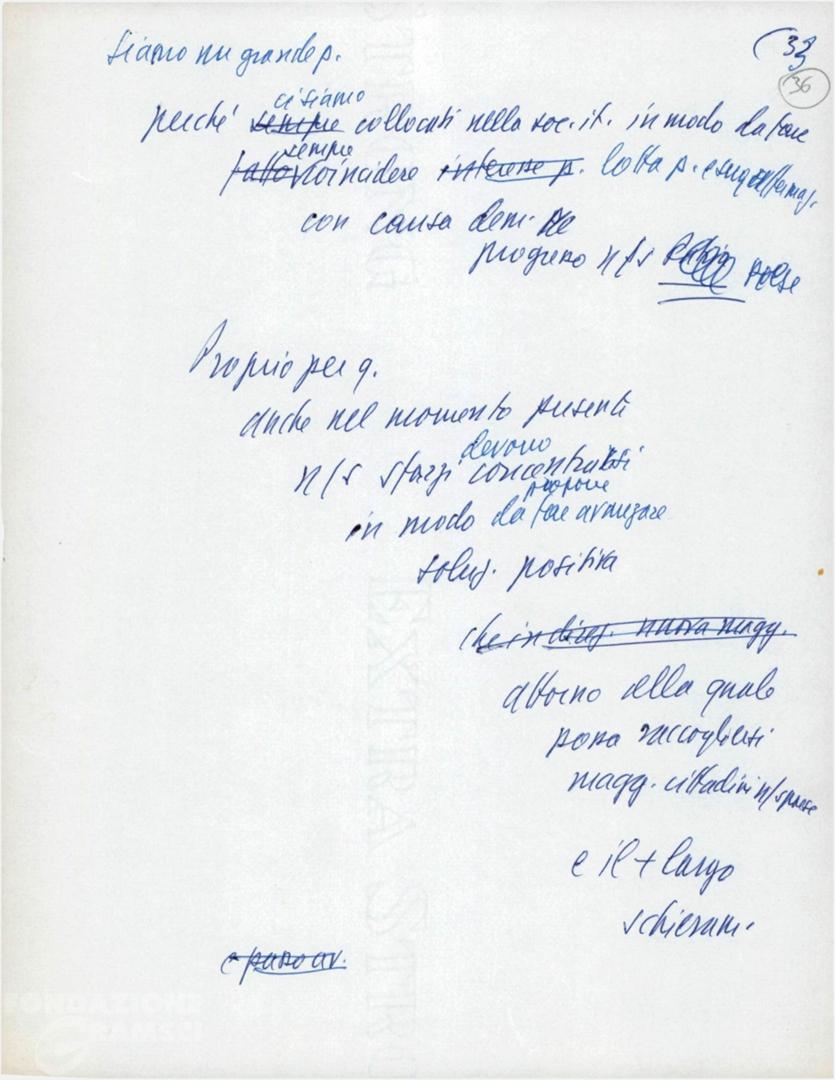 Siamo un grande p.
33
36
ci siamo
perché sempre collocati nella soc. it. in modo da fare
sempre
fatto coincidere interesse p. lotta p. e sua
con causa dem. e
progresso n/s paese
Proprio per q.
anche nel momento presente
devono
n/s sforzi concentrarsi
proporre
in modo da fare avanzare
soluz. positiva
che in direz. nuova magg.
attorno alla quale
possa raccogliersi
magg. cittadini n/s paese
e il + largo
schieram.
e passo av.
FONDAZIONE
GRAMSCI